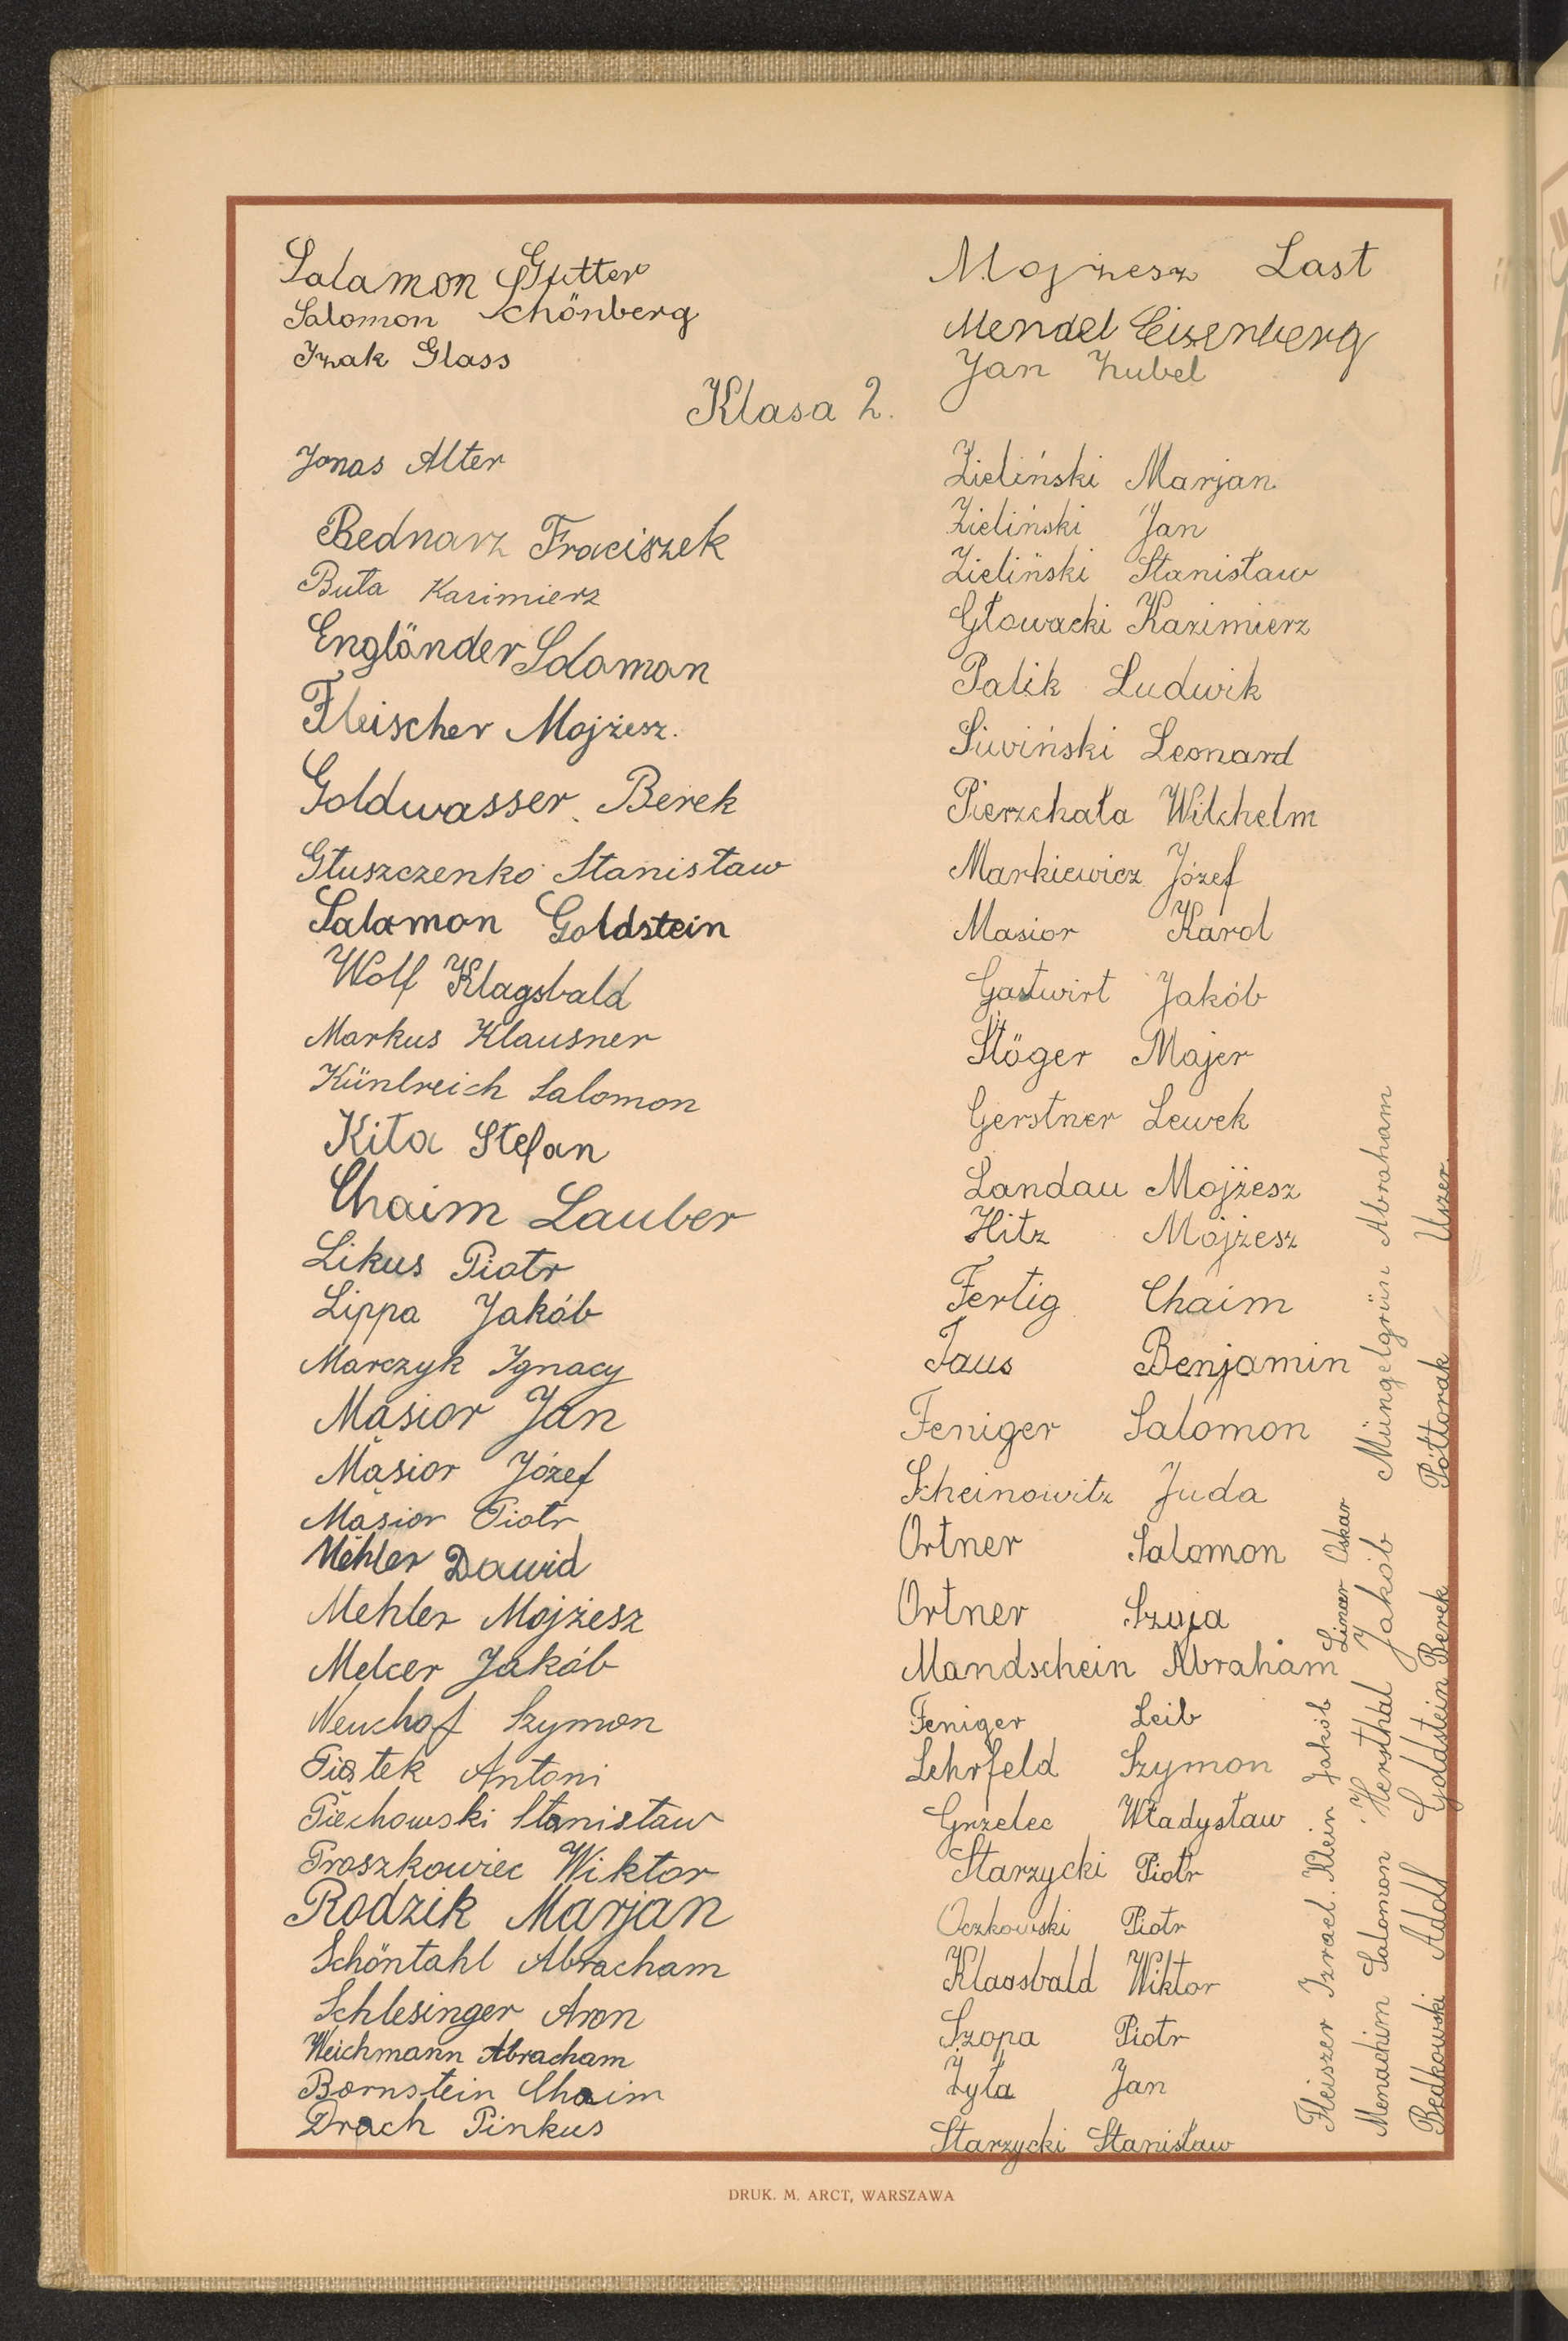 Salamon Gutter
Salomon Schönberg
Izak Glass
Mojzesz Last
Mendel Eisenberg
Jan Zubel
Klasa 2.
Jonas Alter
Bednarz Fraciszek
Buta Kazimierz
Engländer Salomon
Fleischer Mojżesz.
Goldwasser Berek
Głuszczenko Stanisław
Salamon Goldstein
Wolf Klagsbald
Markus Klausner
Künlreich Salomon
Kita Stefan
Chaim Lauber
Likus Piotr
Lippa Jakób
Marczyk Ignacy
Mąsior Jan
Mąsior Józef
Mąsior Piotr
Mehler Dawid
Mehler Mojżesz
Melcer Jakób
Neuchof Szymon
Piątek Antoni
Piechowski Stanisław
Proszkowiec Wiktor
Rodzik Marjan
Schöntahl Abracham
Schlesinger Aron
Weichmann Abracham
Bornstein Chaim
Drach Pinkus
Zieliński Marjan
Zieliński Jan
Zieliński Stanisław
Głowacki Kazimierz
Palik Ludwik
Siwiński Leonard
Pierzchała Wilchelm
Markiewicz Józef
Masior Karol
Gastwirt Jakób
Stöger Majer
Gerstner Lewek
Landau Mojżesz
Hitz Mojżesz
Fertig Chaim
Taus Benjamin
Feniger Salomon
Scheinowitz Juda
Ortner Salomon
Ortner Szyja
Mandschein Abraham
Feniger Leib
Lehrfeld Szymon
Grzelec Władysław
Starzycki Piotr
Oczkowski Piotr
Klagsbald Wiktor
Szopa Piotr
Żyła Jan
Starzycki Stanisław
Fleiszer Izrael. Klein Jakób Linzer Oskar
Menachim Salomon Hersthal Jakób Müngelgrün Abraham
Bedkowski Adolf Goldstein Berek Półtorak Uszer
DRUK. M. ARCT, WARSZAWA